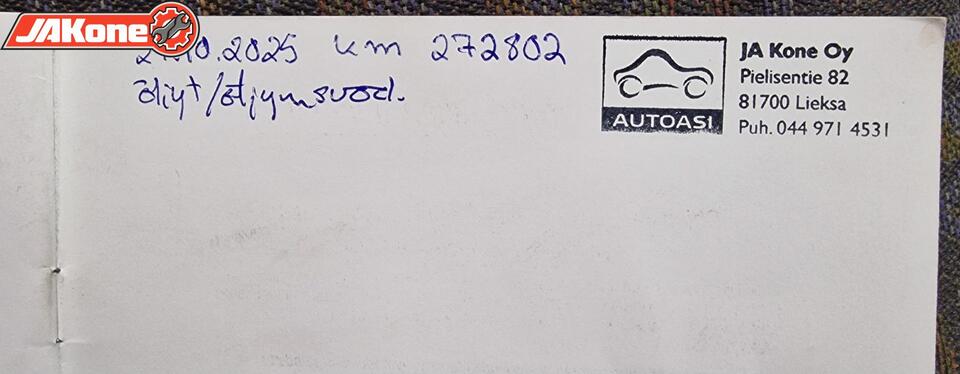 JAKone
.10.2025 km 272802
öljyt/öljynsuod.
AUTOASI
JA Kone Oy
Pielisentie 82
81700 Lieksa
Puh. 044 971 4531